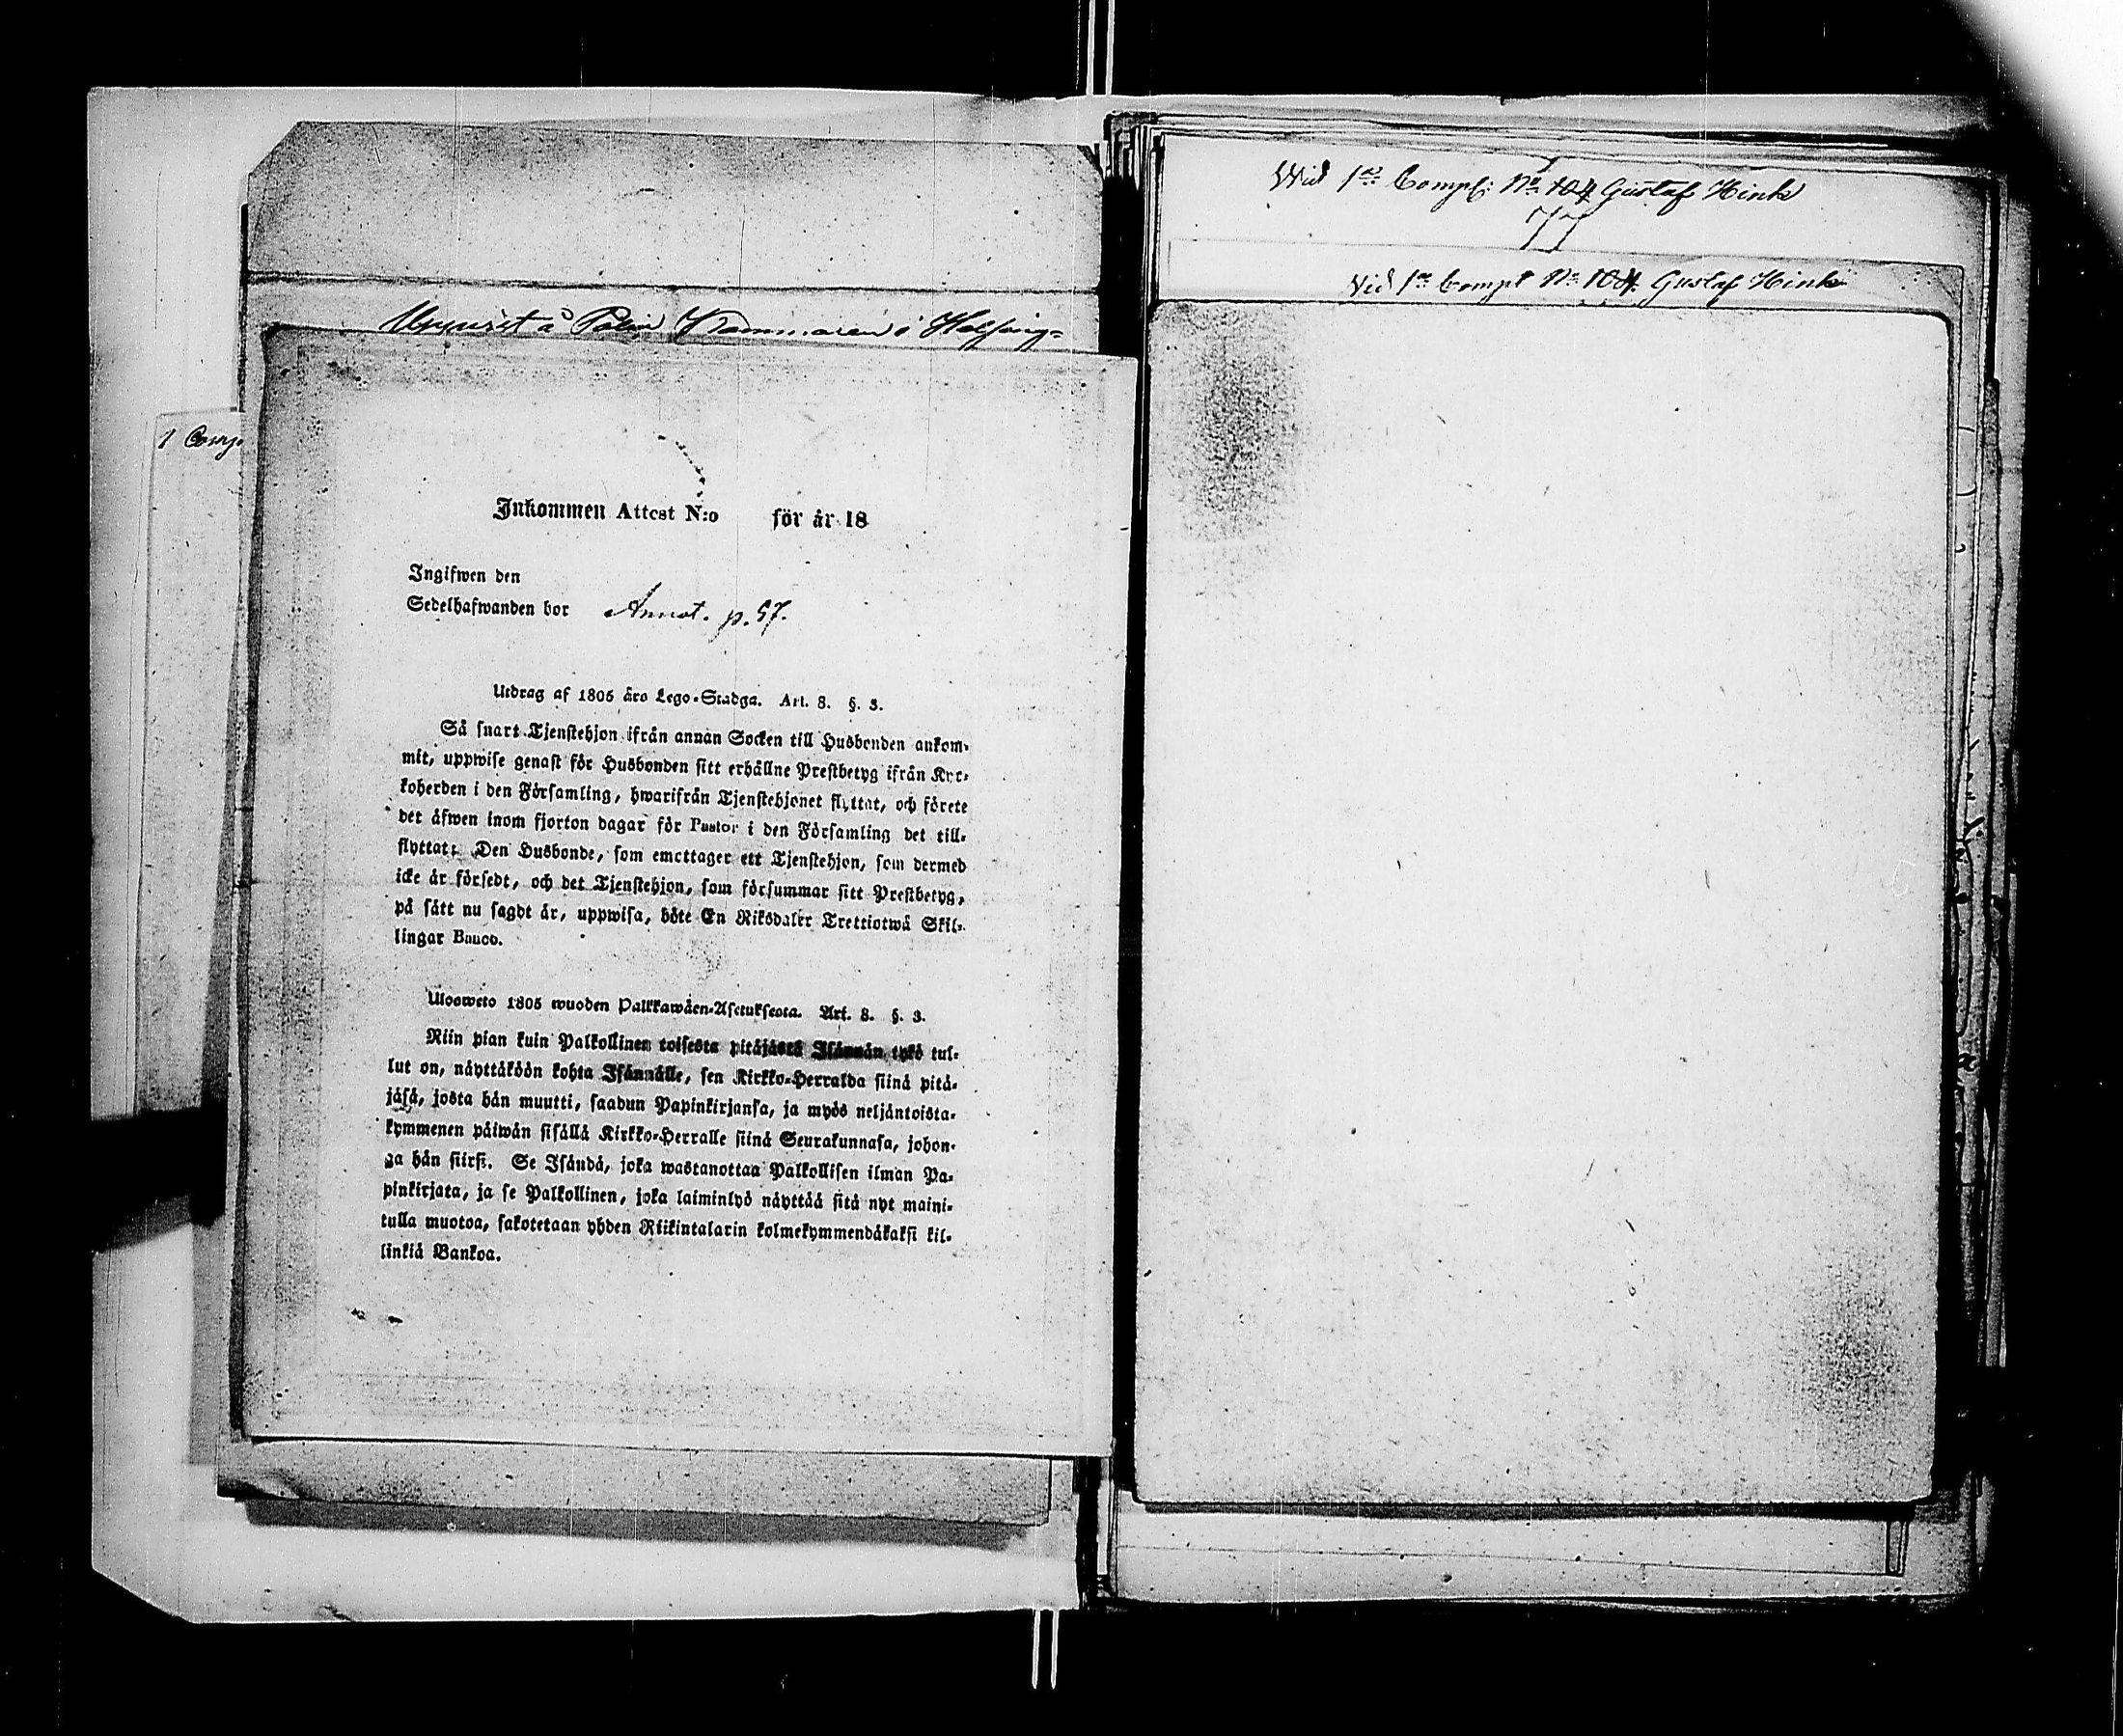 Uppwist å Polis Kammaren i Helsing=
1 Comp.
Inkommen Attest N:o för år 18
Ingifwen den
Sedelhafwanden bor Annot. p. 57.
Utdrag af 1805 års Lego-Stadga. Art. 8. §. 3.
Så snart Tjenstehjon ifrån annan Socken till Husbonden ankom-
mit, uppwise genast för Husbonden sitt erhållne Prestbetyg ifrån Kyr-
koherden i den Församling, hwarifrån Tjenstehjonet flyttat, och förete
det äfwen inom fjorton dagar för Pastor i den Församling det till-
flyttat: Den Husbonde, som emottager ett Tjenstehjon, som dermed
icke är försedt, och det Tjenstehjon, som försummar sitt Prestbetyg,
på sätt nu sagdt är, uppwisa, böte En Riksdaler Trettiotwå Skil-
lingar Banco.
Ulosweto 1805 wuoden Palkkawäen-Asetuksesta. Art. 8. §. 3.
Niin pian kuin Palkollinen toisesta pitäjästä Isännän tykö tul-
lut on, näyttäköön kohta Isännälle, sen Kirkko-Herralda siinä pitä-
jäsä, josta hän muutti, saadun Papinkirjansa, ja myös neljäntoista-
kymmenen päiwän sisällä Kirkko-Herralle siinä Seurakunnasa, johon-
ga hän siirsi. Se Isändä, joka wastanottaa Palkollisen ilman Pa-
pinkirjata, ja se Palkollinen, joka laiminlyö näyttää sitä nyt maini-
tulla muotoa, sakotetaan yhden Riikintalarin kolmekymmendäkaksi kil-
linkiä Bankoa.
Wid 1ra Comp: No 104 Gustaf Hink
77
Vid 1ra Comp: No 104 Gustaf Hink